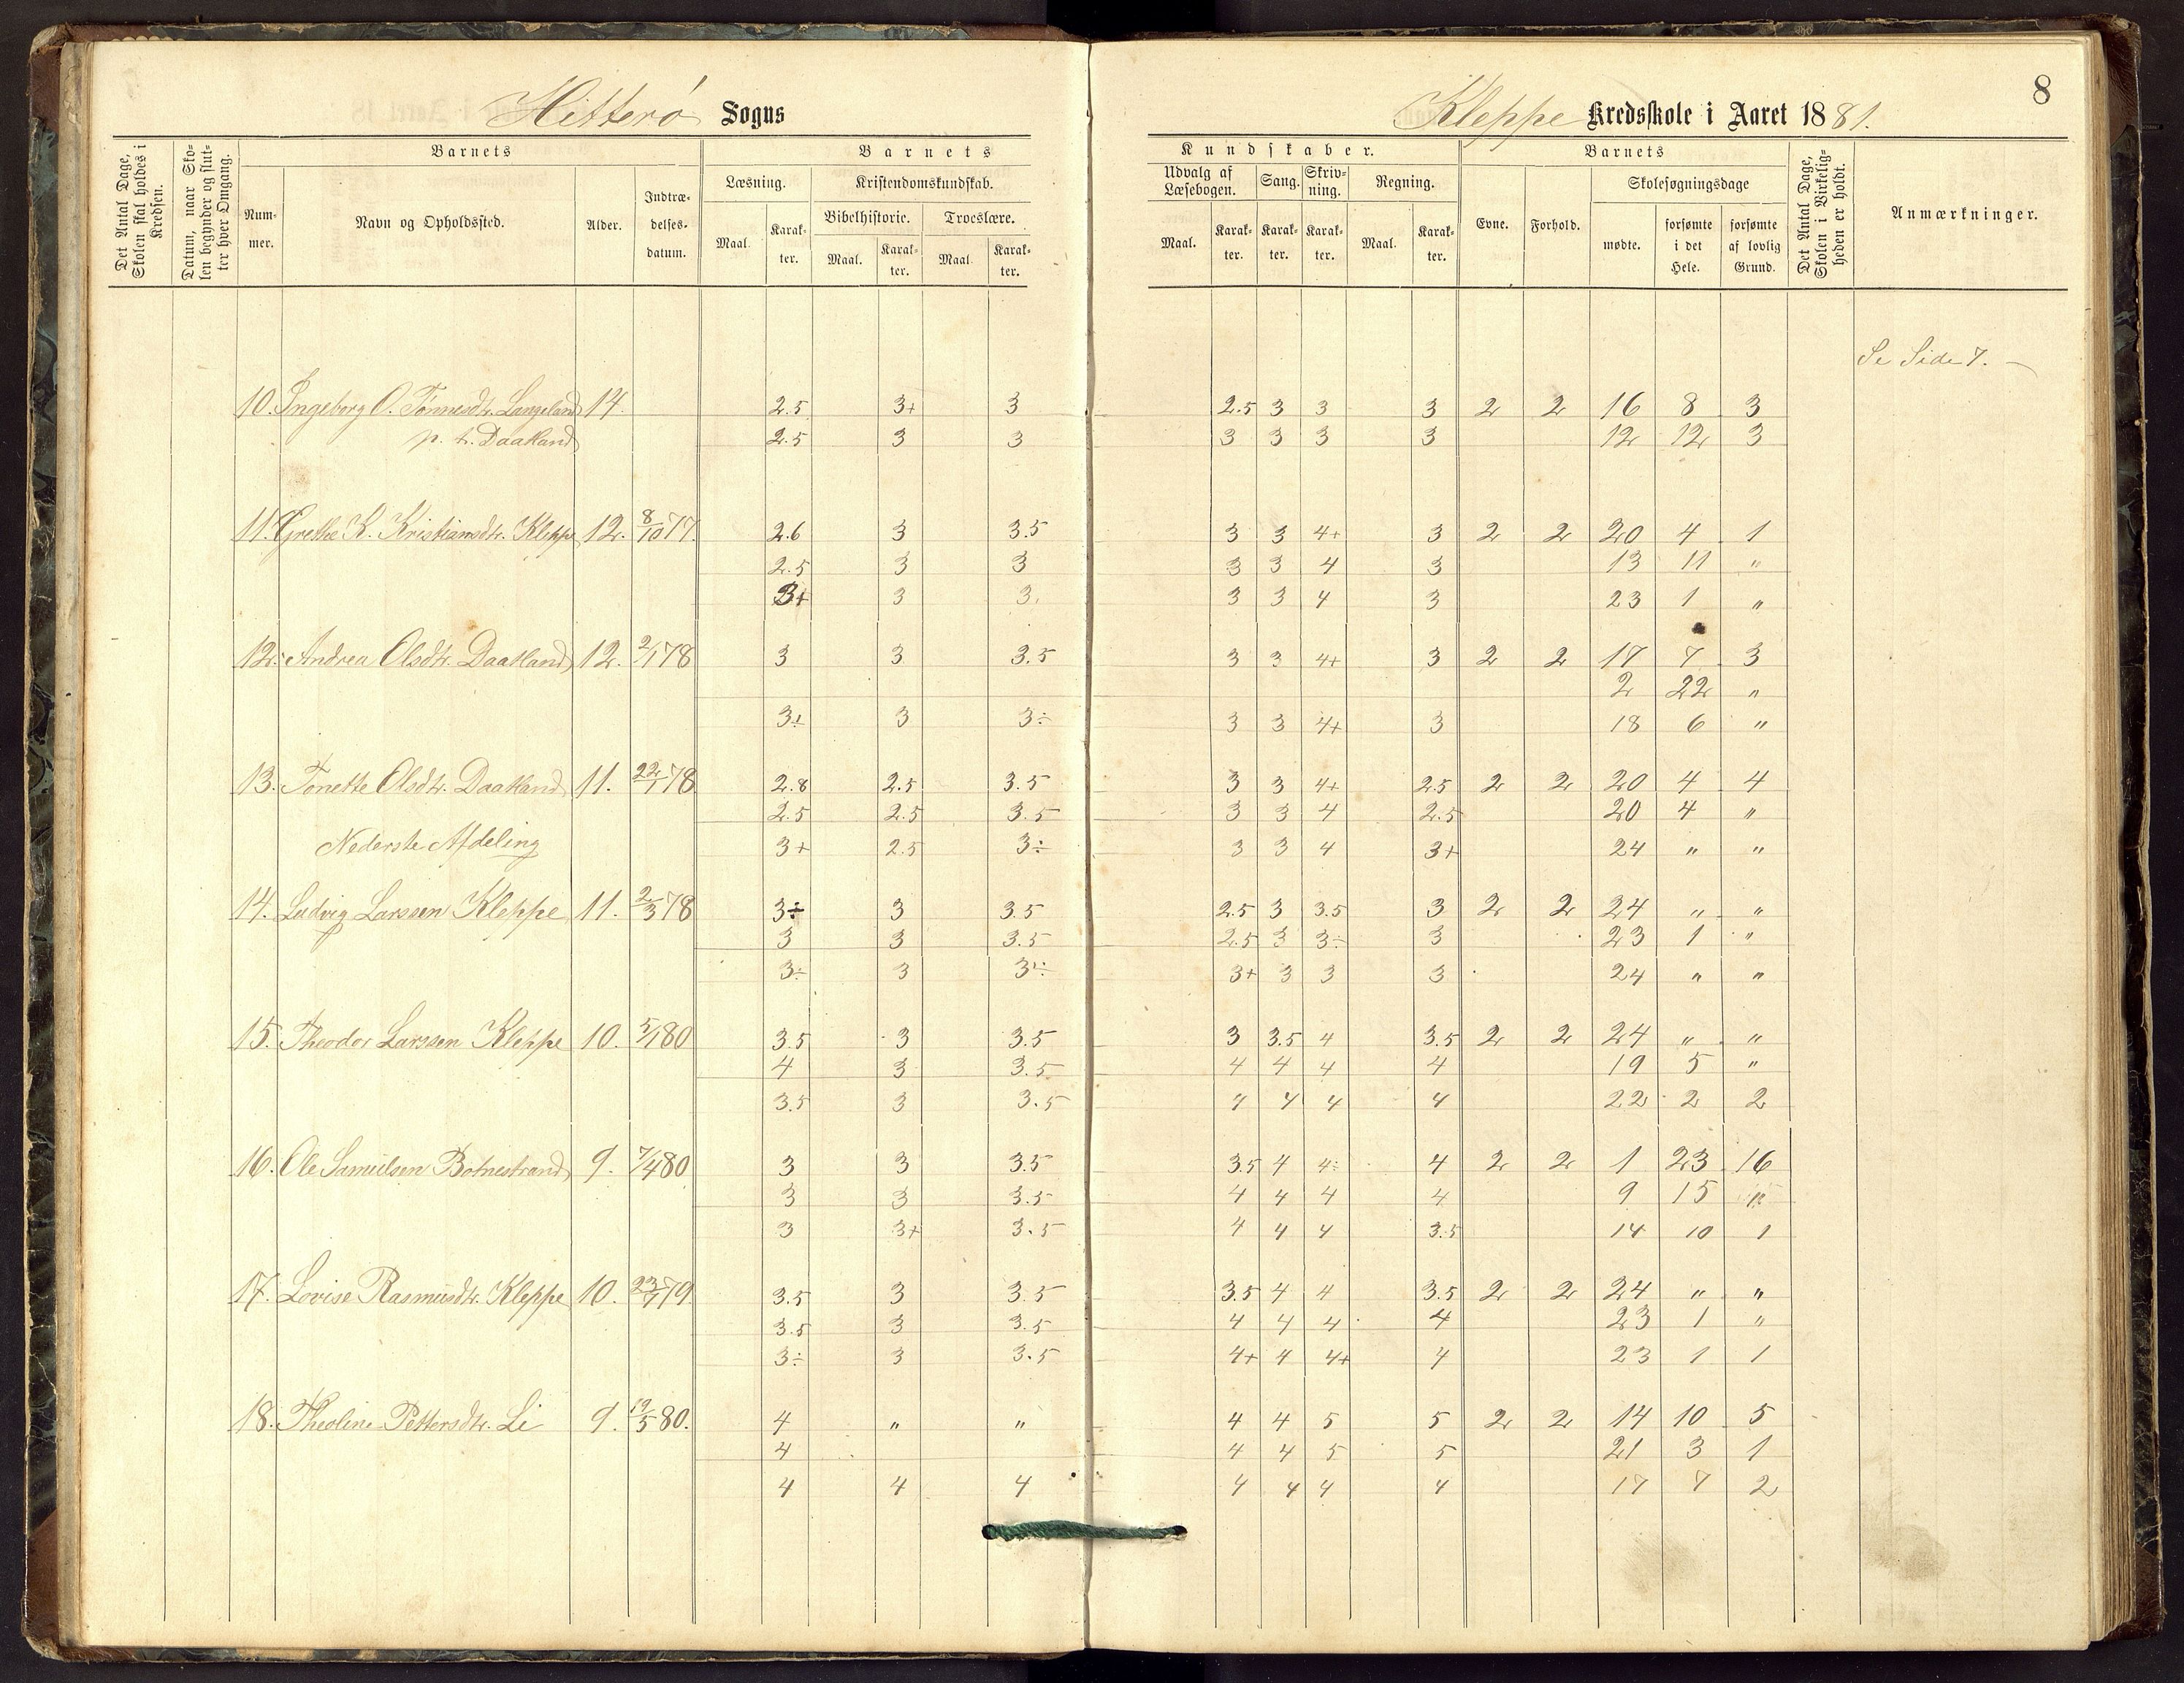 Hitterø Sogns
Kleppe Kredsskole i Aaret 1881.
8
Det Antal Dage, Skolen skal holdes i Kredsen.
Datum, naar Skolen begynder og slutter hver Omgang.
Barnets
Nummer.
Navn og Opholdssted.
Alder.
Indtrædelsesdatum.
Barnets
Læsning.
Maal.
Karakter.
Kristendomskundskab.
Bibelhistorie.
Maal.
Karakter.
Troeslære.
Maal
Karakter.
Kundskaber.
Udvalg af Læsebogen.
Maal.
Karakter.
Sang.
Karakter.
Skrivning.
Karakter.
Regning.
Maal.
Karakter.
Barnets
Evne.
Forhold.
Skolesøgningsdage
mødte.
forsømte i det Hele.
forsømte af lovlig Grund.
Det Antal Dage, Skolen i Virkeligheden er holdt.
Anmærkninger.
Se Side 7.
10. Ingeborg O. Tønnesdtr. Langeland 14. 2.5 3+ 3 2.5 3 3 3 2 2 16 8 3
p. t. Daatland 2.5 3 3 3 3 3 3 12 12 3
11. Grethe K. Kristiansdtr. Kleppe 12. 8/10 77. 2.6 3 3.5 3 3 4+ 3 2 2 20 4 1
2.5 3 3 3 3 4 3 13 11 "
3+ 3 3. 3 3 4 3 23 1 "
12. Andrea Olsdtr. Daatland 12. 2/1 78 3 3 3.5 3 3 4+ 3 2 2 17 7 3
2 22 "
3÷ 3 3÷ 3 3 4+ 3 18 6 "
13. Tonette Olsdtr. Daatland 11. 22/1 78 2.8 2.5 3.5 3 3 4+ 2.5 2 2 20 4 4
2.5 2.5 3.5 3 3 4 2.5 20 4 "
Nederste Afdeling 3+ 2.5 3÷ 3 3 4 3+ 24 " "
14. Ludvig Larssen Kleppe 11. 2/3 78 3÷ 3 3.5 2.5 3 3.5 3 2 2 24 " "
3 3 3.5 2.5 3 3÷ 3 23 1 "
3÷ 3 3÷ 3+ 3 3 3 24 " "
15. Theodor Larssen Kleppe 10. 5/1 80 3.5 3 3.5 3 3.5 4 3.5 2 2 24 " "
4 3 3.5 4 4 4 4 19 5 "
3.5 3 3.5 4 4 4 4 22 2 2
16. Ole Samuelsen Botnestrand 9. 7/4 80 3 3 3.5 3.5 4 4÷ 4 2 2 1 23 16
3 3 3.5 4 4 4 4 9 15 "
3 3+ 3.5 4 4 4 3.5 14 10 1
17. Lovise Rasmusdtr. Kleppe 10. 23/7 79. 3.5 3 3.5 3.5 4 4 3.5 2 2 24 " "
3.5 3 3.5 4 4 4 4 23 1 "
3÷ 3 3.5 4+ 4 4+ 4 23 1 1
18. Theoline Pettersdtr. Li 9. 19/5 80. 4 " " 4 4 5 5 2 2 14 10 5
4 4 4 5 5 21 3 1
4 4 4 4 4 4 4 17 7 2